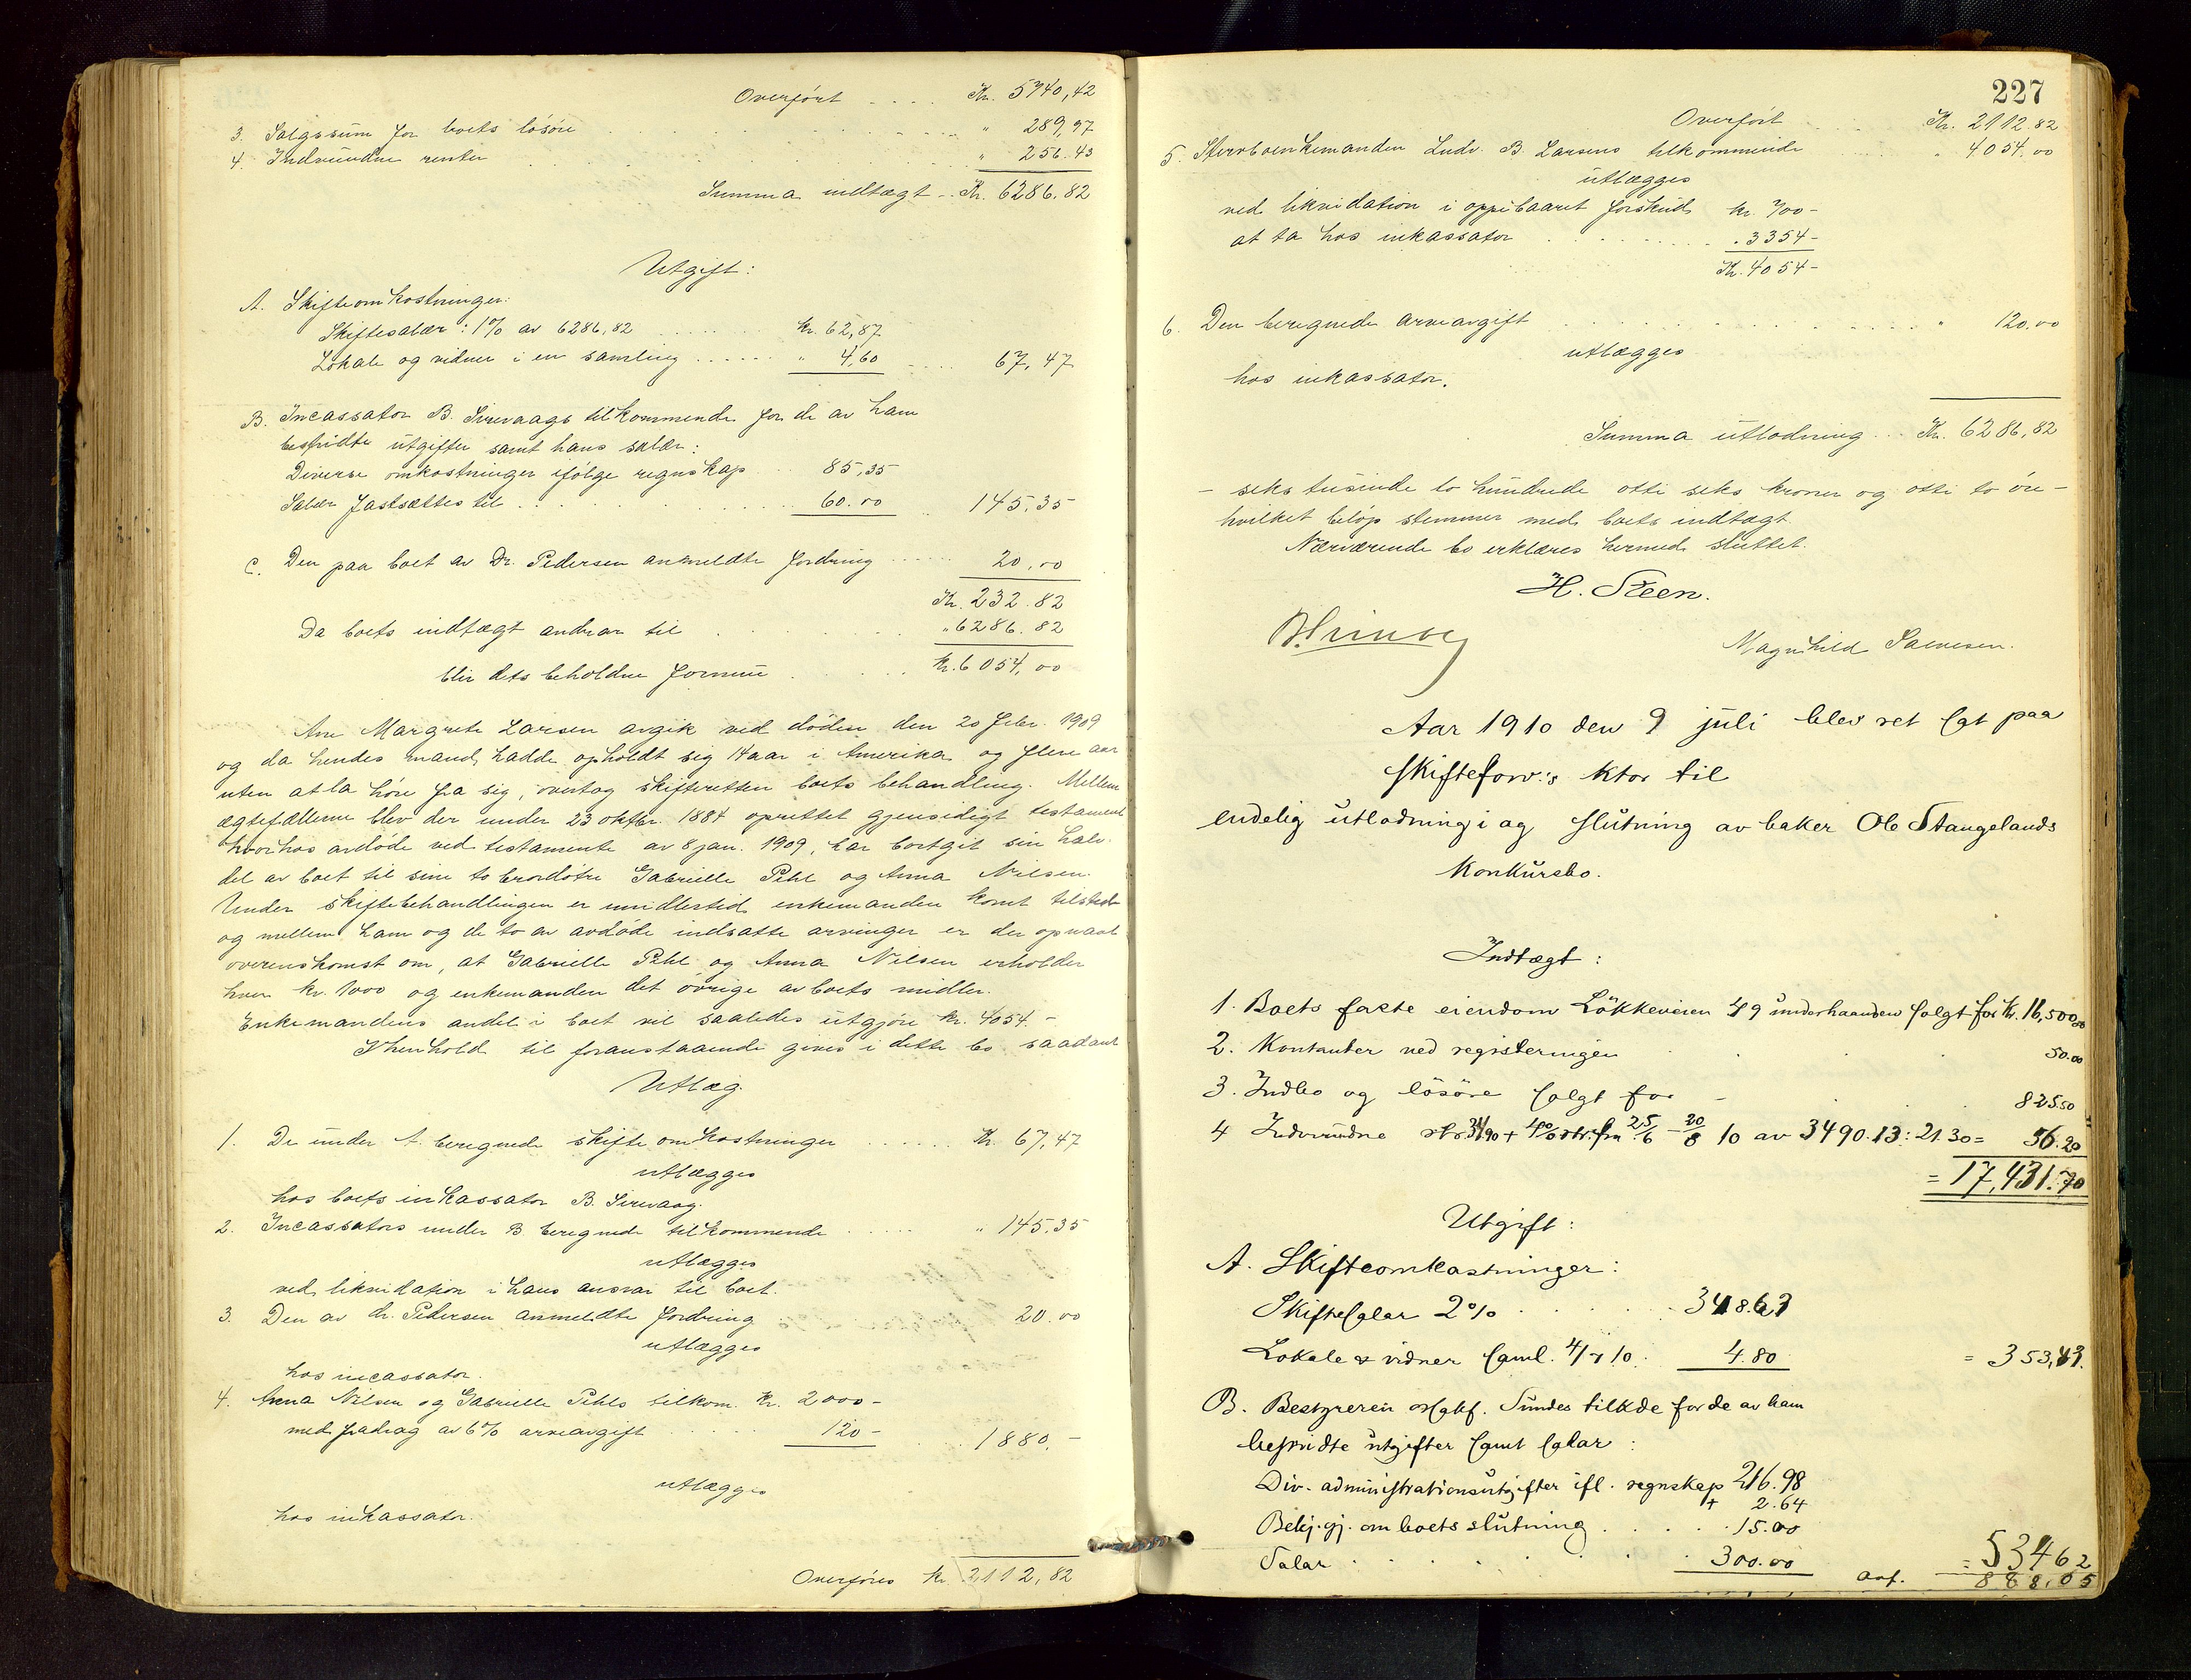 Overført . . . . Kr. 5740,42
3. Salgssum for boets løsøre . . . " 289,97
4. Indvundne renter . . . " 256.43
Summa indtægt .. Kr. 6286.82
Utgift:
A. Skifteomkostninger:
Skiftesalær: 1% av 6286,82 . . . kr. 62,87
Lokale og vidner i en samling . . . " 4,60 . . . 67,47
B. Incassator B. Sirevaags tilkommende for de av ham
bestridte utgifter samt hans salær:
Diverse omkostninger ifølge regnskap . . 85,35
Salær fastsættes til . . . 60.00 . . 145,35
C. Den paa boet av Dr. Pedersen anmeldte fordring . . . 20,00
Kr. 232.82
Da boets indtægt andrar til . . . " 6286.82
blir dets beholdne formue . . . Kr. 6054,00
Ane Margrete Larsen avgik ved døden den 20 febr. 1909
og da hendes mand hadde opholdt sig 14 aar i Amerika og flere aar
uten at la høre fra sig, overtog skifteretten boets behandling. Mellem
ægtefællerne blev der under 23 oktbr. 1884 oprettet gjensidigt testament
hvorhos avdøde ved testamente av 8 jan. 1909, har bortgit sin halv-
del av boet til sine to brordøtre Gabrielle Pihl og Anna Nilsen.
Under skiftebehandlingen er imidlertid enkemanden komt tilstede
og mellem ham og de to av avdøde indsatte arvinger er der opnaat
overenskomst om, at Gabrielle Pihl og Anna Nilsen erholder
hver kr. 1000 og enkemanden det øvrige av boets midler.
Enkemandens andel i boet vil saaledes utgjøre kr. 4054.-
I henhold til foranstaaende gives i dette bo saadant
Utlæg.
1. De under A. beregnede skifteomkostninger . . . Kr. 67,47
utlægges
hos boets inkassator B. Sirevaag.
2. Incassators under B beregnede tilkommende . . . " 145.35
utlægges
ved likvidation i hans ansvar til boet.
3. Den av dr. Pedersen anmeldte fordring . . . 20.00
utlægges
hos incassator.
4. Anna Nilsen og Gabrielle Pihls tilkom. Kr. 2000-
med fradrag av 6% arveavgift . . . 120- . . . 1880,-
utlægges
hos inkassator.
Overføres kr 2112,82
227
Overført . . . Kr. 2112.82
5. Stervboenkemanden Ludv. B. Larsens tilkommende . . . " 4054.00
utlægges
ved likvidation i oppebaaret forskud kr. 700-
at ta hos inkassator . . . " 3354-
Kr. 4054-
6. Den beregnede arveavgift . . . " 120.00
utlægges
hos inkassator.
Summa utlodning . . . Kr. 6286,82
- seks tusinde to hundrede otti seks kroner og otti to øre -
hvilket beløp stemmer med boets indtægt.
Nærværende bo erklæres hermed sluttet.
H. Steen.
Magnhild Salvesen.
Aar 1910 den 9 juli blev ret sat paa
skifteforv:s ktor til
endelig utlodning i og slutning av baker Ole Stangelands
konkursbo.
Indtægt:
1. Boets faste eiendom Løkkeveien 49 underhaanden solgt for Kr. 16,500,00
2. Kontanter ved registeringen . . . 50.00
3. Indbo og løsøre solgt for - . . . 825.50
4 Indvundne 34.90 + 4% fra 25/6 - 20/8 10 av 3490.13: 21.30 = 56.20
= 17,431.70
Utgift:
A. Skifteomkostninger:
Skiftesalær 2% . . . 348.63
Lokale & vidner saml. 4/7 10. 4.80 = 353,43.
B. Bestyreren Sundes tilkde for de av ham
bestridte utgifter samt salær:
Div. administrationsutgifter ifl. regnskap 216.98
+ 2.64
Bekj.gj. om boets slutning . . . 15.00
Salær . . . 300.00 = 534.62
888,05